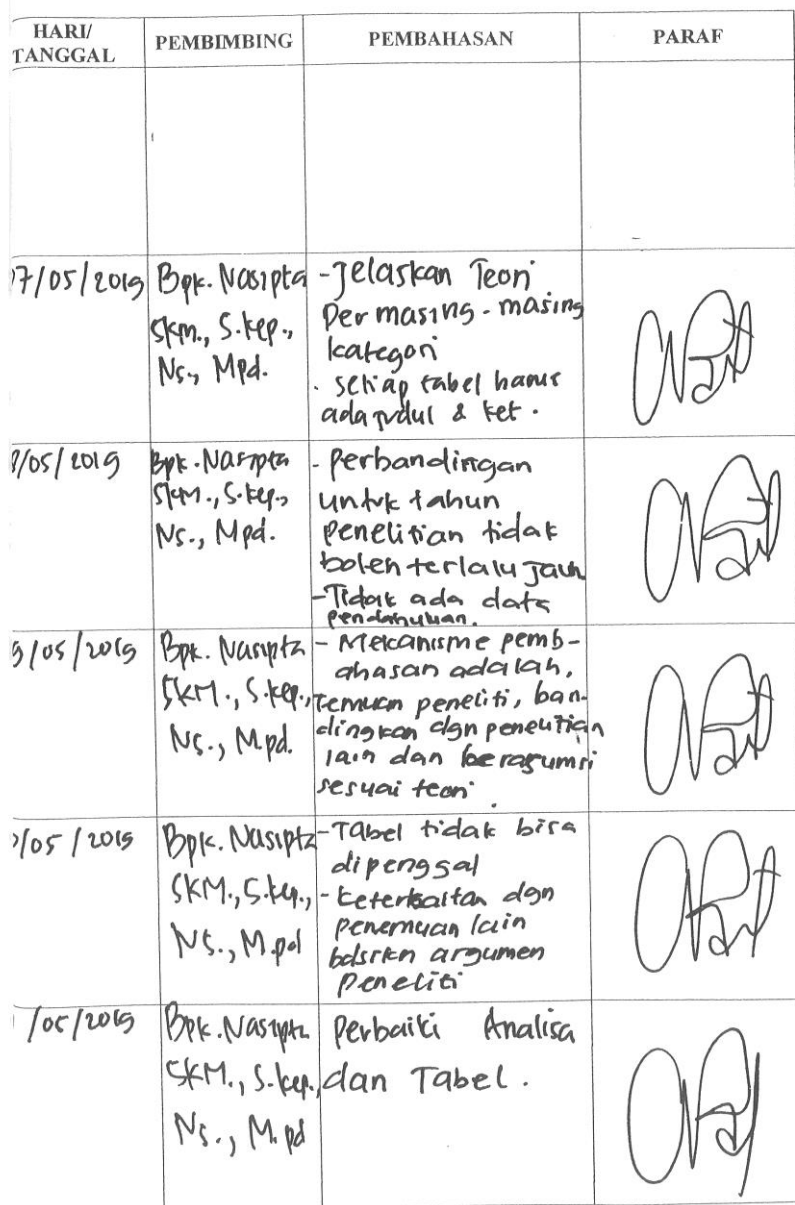 HARI/ TANGGAL PEMBIMBING PEMBAHASAN PARAF
7/05/2019
Bpk. Nasipta
Skm., S.kep.,
Ns., Mpd.
- Jelaskan Teori
Per masing-masing
kategori
. setiap tabel harus
ada judul & ket.
/05/2019
Bpk. Nasipta
SKM., S.kep.,
Ns., Mpd.
- Perbandingan
untuk tahun
penelitian tidak
boleh terlalu jauh
- Tidak ada data
pendahuluan.
/05/2019
Bpk. Nasipta
SKM., S.kep.,
Ns., M.pd.
- Mekanisme pemb-
ahasan adalah,
temuan peneliti, ban-
dingkan dgn penelitian
lain dan beragumsi
sesuai teori.
/05/2019
Bpk. Nasipta
SKM., S.kep.,
Ns., M.pd
- Tabel tidak bisa
dipenggal
- keterkaitan dgn
penemuan lain
bdsrkn argumen
peneliti
/05/2019
Bpk. Nasipta
SKM., S.kep.,
Ns., M.pd
Perbaiki Analisa
dan Tabel.